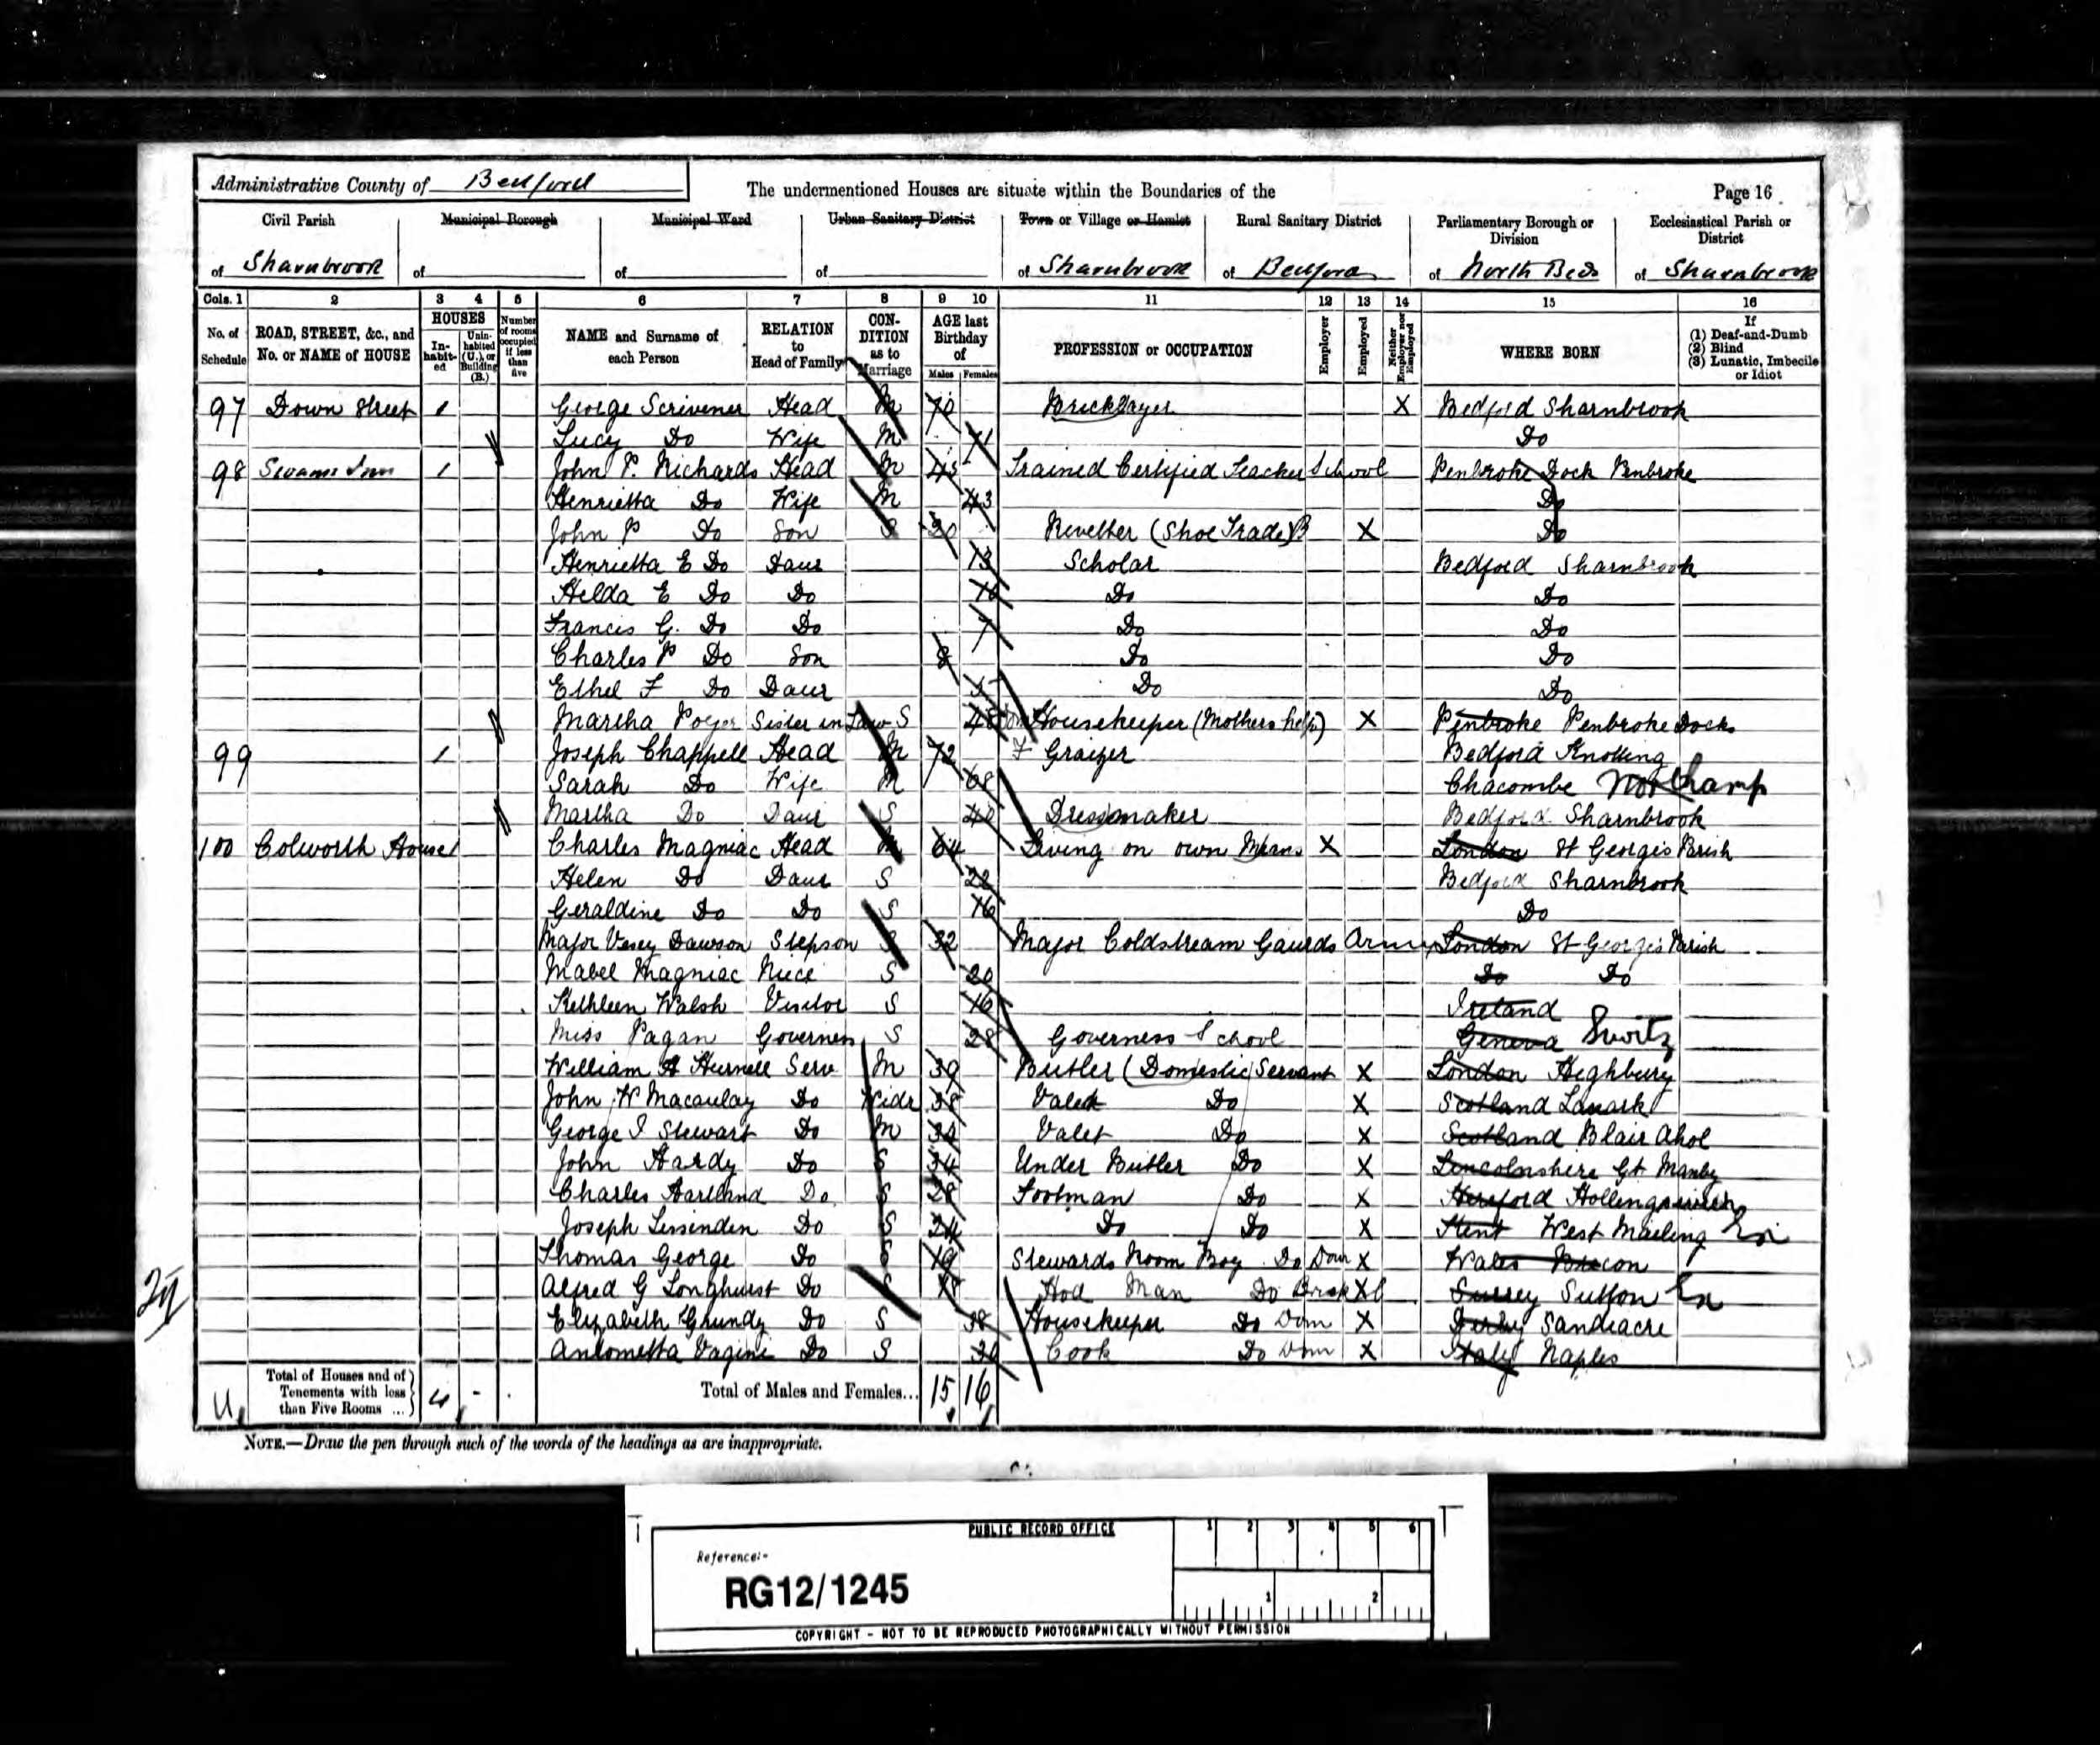 Administrative County of Bedford
The undermentioned Houses are situate within the Boundaries of the
Page 16
Civil Parish Municipal Borough Municipal Ward Urban Sanitary District Town or Village or Hamlet Rural Sanitary District Parliamentary Borough or Division Ecclesiastical Parish or District
of Sharnbrook of of of of Sharnbrook of Bedford of North Beds of Sharnbrook
Cols. 1 2 3 4 5 6 7 8 9 10 11 12 13 14 15 16
No. of Schedule ROAD, STREET, &c., and No. or NAME of HOUSE HOUSES Inhabited Uninhabited (U.), or Building (B.) Number of rooms occupied if less than five NAME and Surname of each Person RELATION to Head of Family CONDITION as to Marriage AGE last Birthday of Males Females PROFESSION or OCCUPATION Employer Employed Neither Employer nor Employed WHERE BORN If (1) Deaf-and-Dumb (2) Blind (3) Lunatic, Imbecile or Idiot
97 Down Street 1 George Scrivener Head M 70 Bricklayer X Bedford Sharnbrook
Lucy Do Wife M 71 Do
98 Swans Inn 1 John P. Richards Head M 45 Trained Certified Teacher School Penbroke Dock Penbroke
Henrietta Do Wife M 43 Do
John P Do Son S 20 Rivetter (Shoe Trade) X Do
Henrietta E Do Daur 13 Scholar Bedford Sharnbrook
Helda E Do Do 10 Do Do
Francis G. Do Do 7 Do Do
Charles P Do Son 8 Do Do
Ethel F Do Daur 5 Do Do
Martha Sister in Law S 48 Housekeeper (Mothers help) X Penbroke Penbroke Docks
99 1 Joseph Chappell Head M 72 Graizer Bedford Knotting
Sarah Do Wife M 68 Chacombe Northamp
Martha Do Daur S 40 Dressmaker Bedford Sharnbrook
100 Colworth House 1 Charles Magniac Head M 64 Living on own Means X London St Georges Parish
Helen Do Daur S 22 Bedford Sharnbrook
Geraldine Do Do S 16 Do
Major Vesey Dawson Stepson S 32 Major Coldstream Gaurds Army London St Georges Parish
Mabel Magniac Niece S 20 Do Do
Kethleen Walsh Visitor S 16 Ireland
Miss Pagan Governess S 28 Governess School Geneva Switz
William A Hurnell Serv M 39 Butler (Domestic Servant X London Heghbury
John W Macaulay Do Widr 38 Valet Do X Scotland Lanark
George I Stewart Do M 34 Valet Do X Scotland Blair Ahol
John Hardy Do S 34 Under Butler Do X Lincolnshire Gt Manby
Charles Hartland Do S 28 Footman Do X Hereford
Joseph Lissenden Do S 24 Do Do X Kent West Mailing
Thomas George Do S 19 Stewards Room Boy Do Dom X Wales Brecon
Alfred G Longhurst Do S 18 Hod Man Do X Surrey Sutton
Elizabeth Grundy Do S 38 Housekeeper Do Dom X Derby Sandiacre
Antometta Vagini Do S Cook Do Dom X Italy Naples
4 Total of Houses and of Tenements with less than Five Rooms ... 4 - Total of Males and Females... 15 16
NOTE.—Draw the pen through such of the words of the headings as are inappropriate.
PUBLIC RECORD OFFICE
1 2 3 4 5 6
Reference:-
RG12/1245
1 2
COPYRIGHT - NOT TO BE REPRODUCED PHOTOGRAPHICALLY WITHOUT PERMISSION